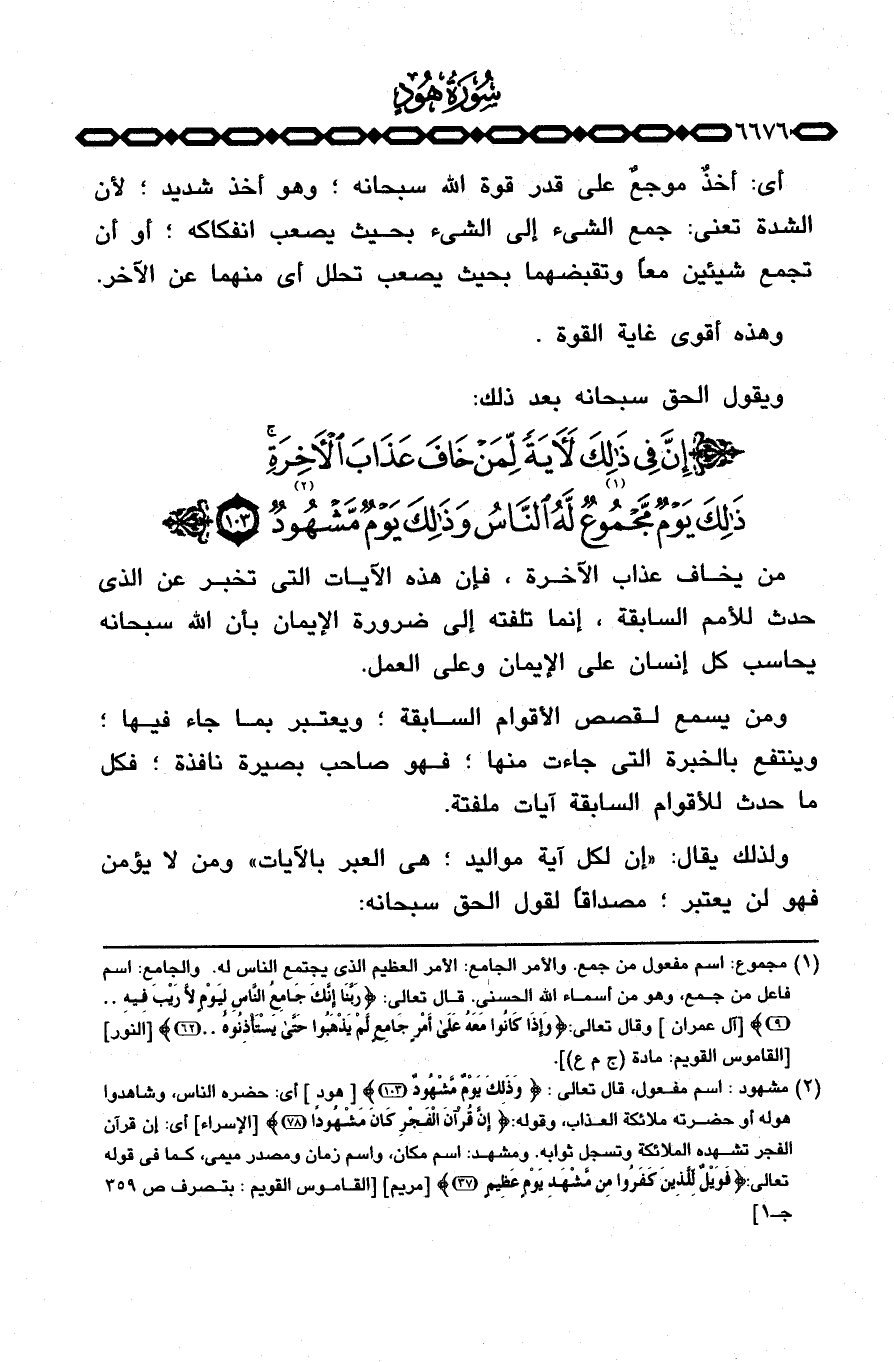 سُورَةُ هُودٍ
٦٦٧٦
أى: أخذٌ موجعٌ على قدر قوة الله سبحانه ؛ وهو أخذ شديد ؛ لأن
الشدة تعنى: جمع الشىء إلى الشىء بحيث يصعب انفكاكه ؛ أو أن
تجمع شيئين معاً وتقبضهما بحيث يصعب تحلل أى منهما عن الآخر.
وهذه أقوى غاية القوة .
ويقول الحق سبحانه بعد ذلك:
إِنَّ فِى ذَٰلِكَ لَأَيَةً لِّمَنْ خَافَ عَذَابَ ٱلْأَخِرَةِ ۚ
ذَٰلِكَ يَوْمٌ مَّجْمُوعٌ (١) لَّهُ ٱلنَّاسُ وَذَٰلِكَ يَوْمٌ مَّشْهُودٌ (٢) ١٠٣
من يخاف عذاب الآخرة ، فإن هذه الآيات التى تخبر عن الذى
حدث للأمم السابقة ، إنما تلفته إلى ضرورة الإيمان بأن الله سبحانه
يحاسب كل إنسان على الإيمان وعلى العمل.
ومن يسمع لقصص الأقوام السابقة ؛ ويعتبر بما جاء فيها ؛
وينتفع بالخبرة التى جاءت منها ؛ فهو صاحب بصيرة نافذة ؛ فكل
ما حدث للأقوام السابقة آيات ملفتة.
ولذلك يقال: «إن لكل آية مواليد ؛ هى العبر بالآيات» ومن لا يؤمن
فهو لن يعتبر ؛ مصداقاً لقول الحق سبحانه:
(١) مجموع: اسم مفعول من جمع. والأمر الجامع: الأمر العظيم الذى يجتمع الناس له. والجامع: اسم
فاعل من جمع، وهو من أسماء الله الحسنى. قال تعالى: ﴿ رَبَّنَا إِنَّكَ جَامِعُ النَّاسِ لِيَوْمٍ لاَّ رَيْبَ فِيهِ ..
(٩) ﴾ [آل عمران ] وقال تعالى:﴿ وَإِذَا كَانُوا مَعَهُ عَلَىٰ أَمْرٍ جَامِعٍ لَّمْ يَذْهَبُوا حَتَّىٰ يَسْتَأْذِنُوهُ ..(٦٢) ﴾ [النور]
[القاموس القويم: مادة (ج م ع)].
(٢) مشهود : اسم مفعول، قال تعالى : ﴿ وَذَٰلِكَ يَوْمٌ مَّشْهُودٌ (١٠٣) ﴾ [ هود ] أى: حضره الناس، وشاهدوا
هوله أو حضرته ملائكة العذاب، وقوله:﴿ إِنَّ قُرْآنَ الْفَجْرِ كَانَ مَشْهُودًا (٧٨) ﴾ [الإسراء] أى: إن قرآن
الفجر تشهده الملائكة وتسجل ثوابه. ومشهد: اسم مكان، واسم زمان ومصدر ميمى، كما فى قوله
تعالى:﴿ فَوَيْلٌ لِّلَّذِينَ كَفَرُوا مِن مَّشْهَدِ يَوْمٍ عَظِيمٍ (٣٧) ﴾ [مريم] [القاموس القويم : بتصرف ص ٣٥٩
جـ١]